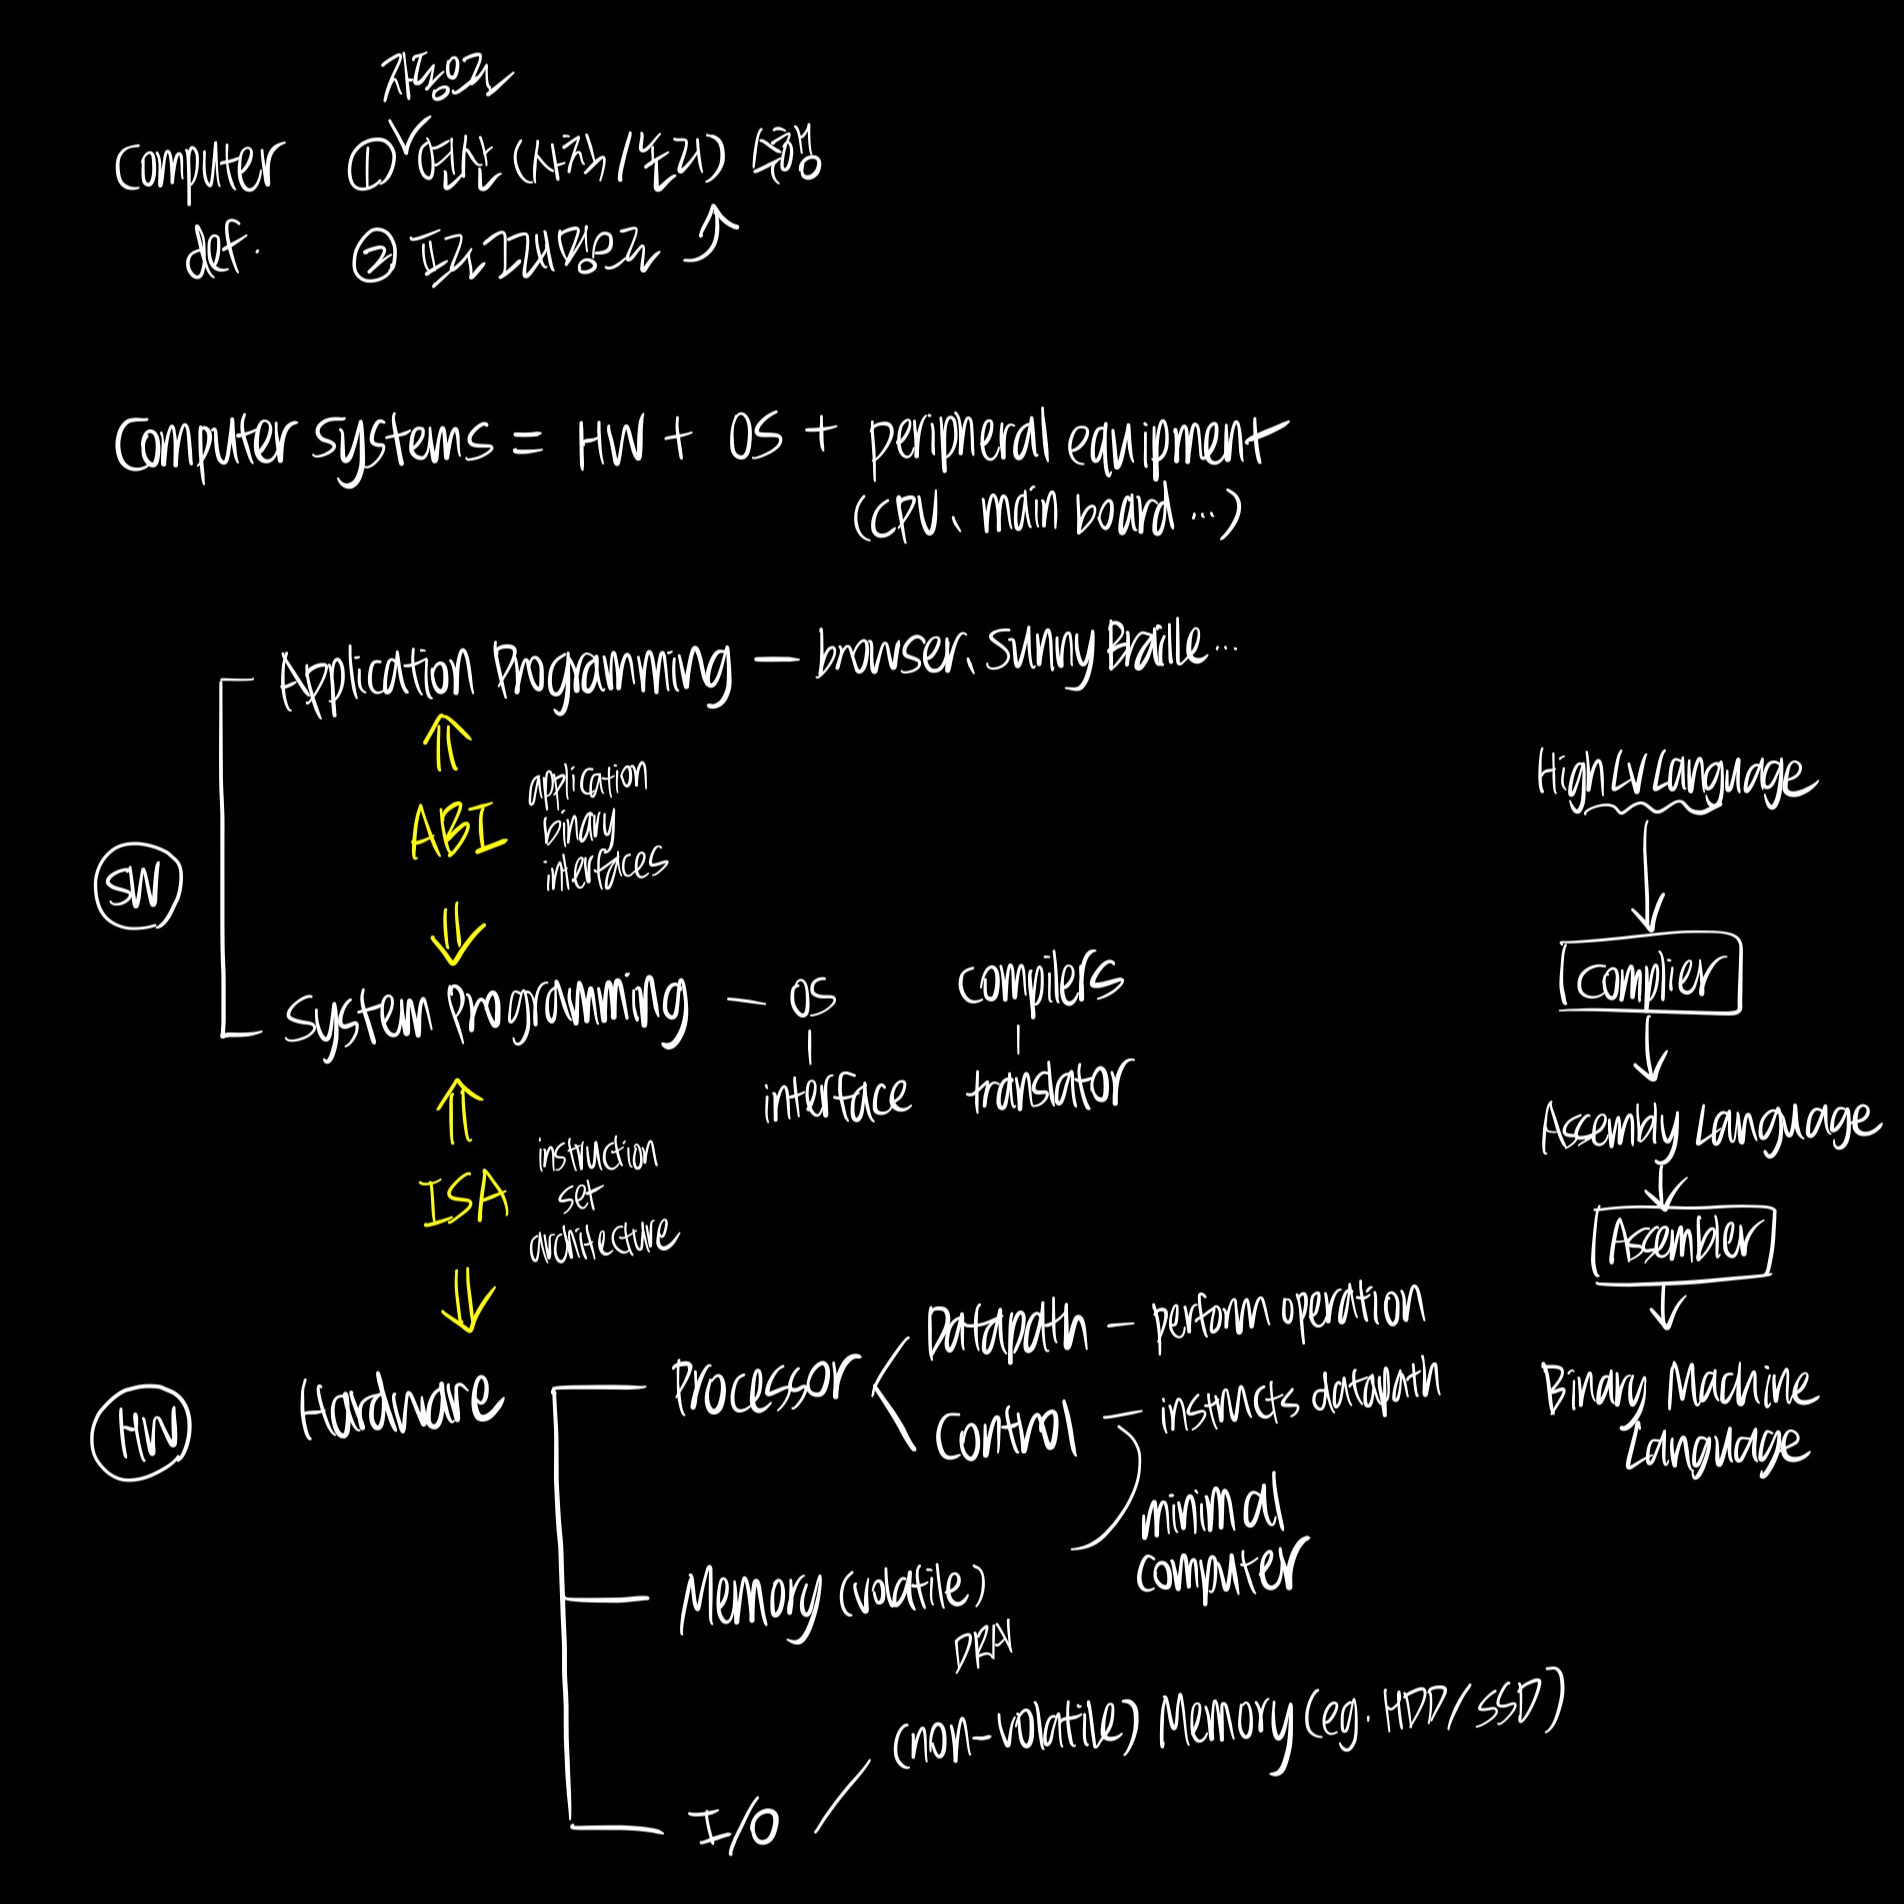 자동으로
Computer ① 연산 (사칙/논리) 수행
def. ② 프로그래밍으로
Computer Systems = HW + OS + peripheral equipment
(CPU、main board ...)
Application Programming — browser、Sunny Braille...
ABI
application
binary
interfaces
SW
System Programming — OS compilers
interface translator
ISA
instruction
set
architecture
HW
Hardware
Processor
Datapath — perform operation
Control — instructs datapath
minimal
computer
Memory (volatile)
(non-volatile) Memory (eg. HDD/SSD)
I/O
High LV Language
Complier
Assembly Language
Assembler
Binary Machine
Language